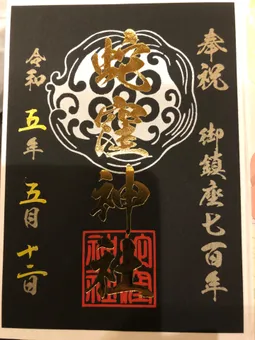 奉祝 御鎮座七百年
蛇窪神社
令和五年五月十二日
蛇窪神社